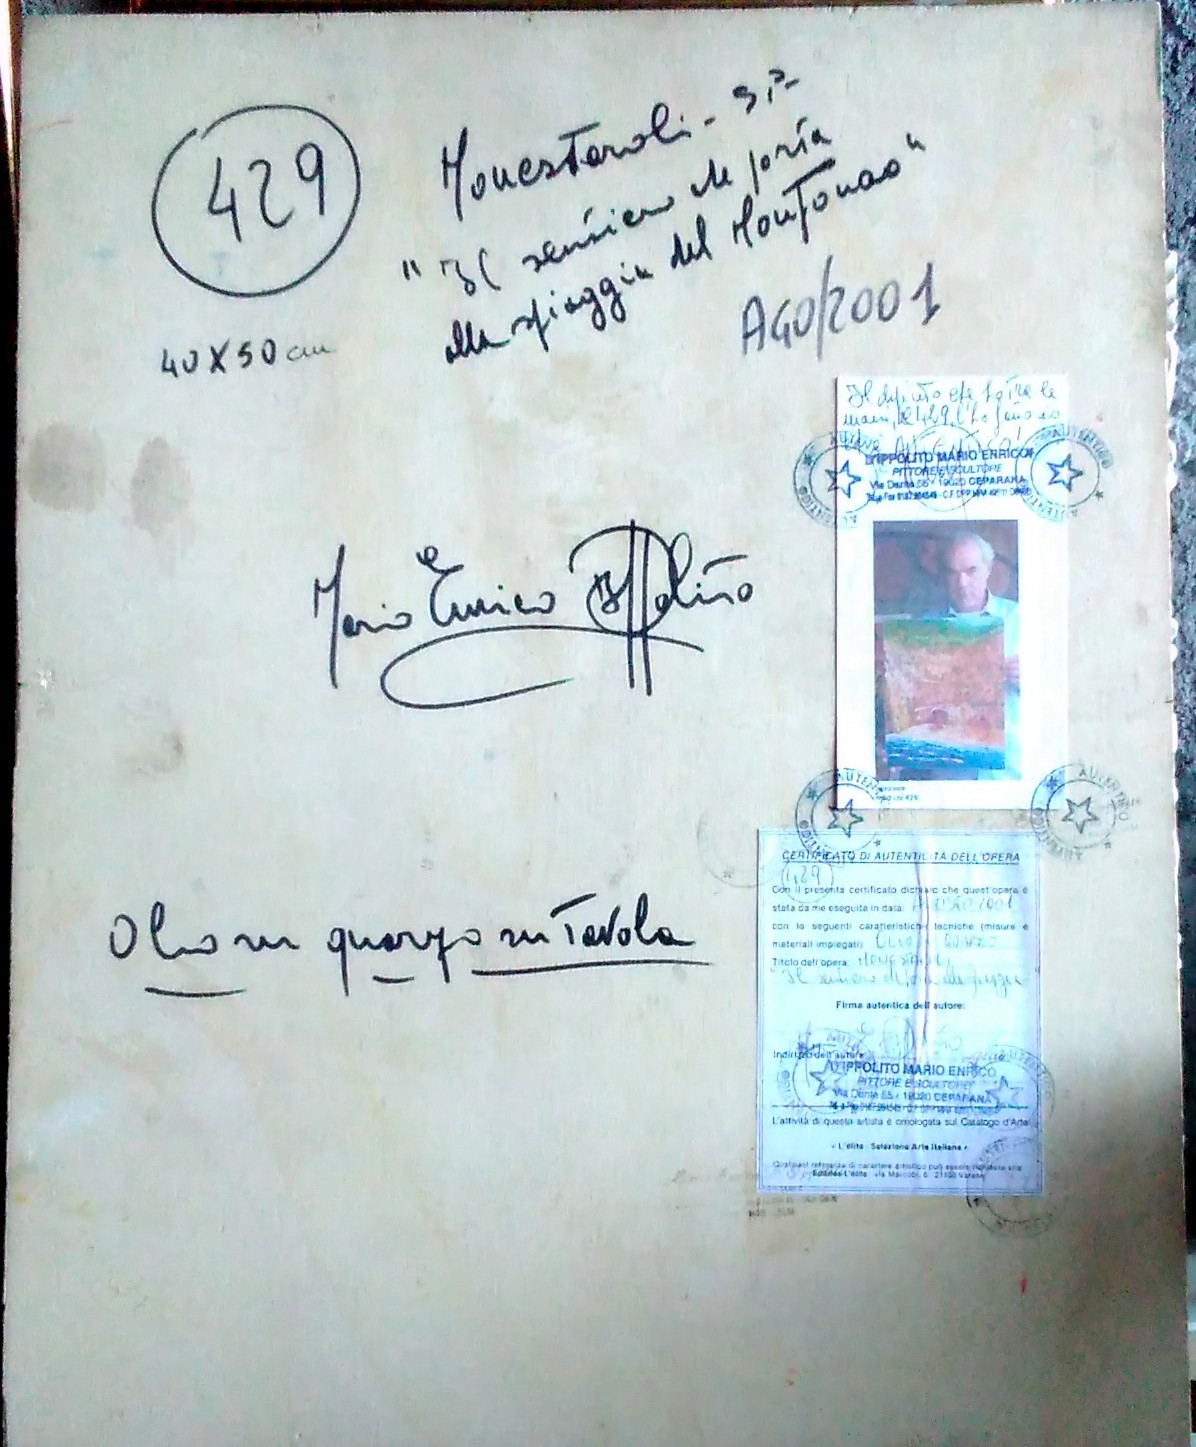 429
Monesteroli - SP-
"Il sentiero che porta
alla spiaggia del Montonao"
40X50 cm
AGO/2001
Il dipinto che
429
D'IPPOLITO MARIO ENRICO
PITTORE E SCULTORE
Via Dante 55 - 19020 CEPARANA
AUTENTICO
AUTENTICO
Mario Enrico D'Ippolito
AUTENTICO
AUTENTICO
Olio su quarzo su Tavola
CERTIFICATO DI AUTENTICITÀ DELL'OPERA
429
Con il presente certificato dichiaro che quest'opera è
stata da me eseguita in data: AGOSTO 2001
con le seguenti caratteristiche tecniche (misure e
materiali impiegati): OLIO QUARZO
Titolo dell'opera: MONESTEROLI
"Il sentiero che porta alla spiaggia
Firma autentica dell'autore:
Indirizzo dell'autore:
D'IPPOLITO MARIO ENRICO
PITTORE E SCULTORE
Via Dante 55 - 19020 CEPARANA
L'attività di questo artista è omologata sul Catalogo d'Arte
« L'élite Selezione Arte Italiana »
Qualsiasi referenza di carattere artistico può essere richiesta alla
Editrice L'élite via 21100 Varese